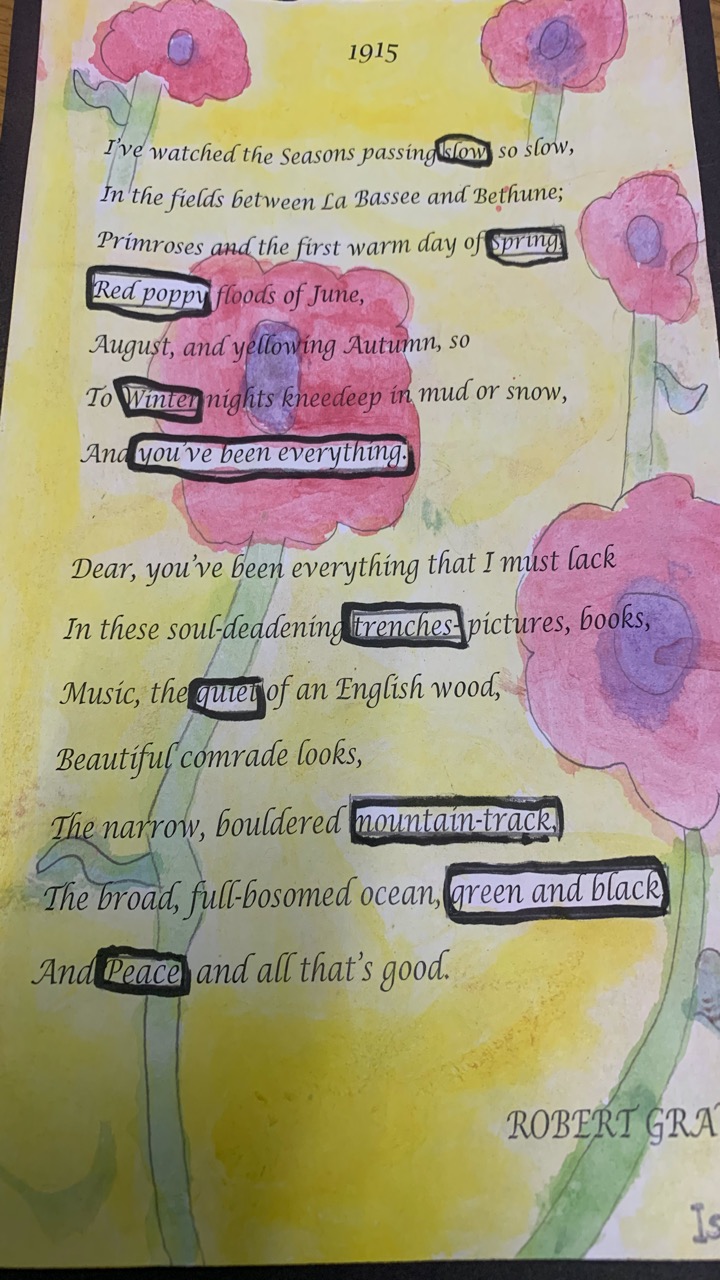 1915
I've watched the Seasons passing slow, so slow,
In the fields between La Bassee and Bethune;
Primroses and the first warm day of Spring,
Red poppy floods of June,
August, and yellowing Autumn, so
To Winter nights kneedeep in mud or snow,
And you've been everything.
Dear, you've been everything that I must lack
In these soul-deadening trenches- pictures, books,
Music, the quiet of an English wood,
Beautiful comrade looks,
The narrow, bouldered mountain-track,
The broad, full-bosomed ocean, green and black
And Peace, and all that's good.
ROBERT GRA
Is